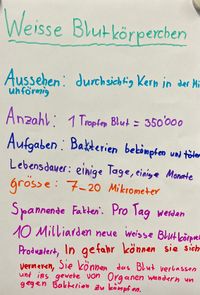 Weisse Blutkörperchen
Aussehen: durchsichtig Kern in der Mi
unförmig
Anzahl: 1 Tropfen Blut = 350'000
Aufgaben: Bakterien bekämpfen und töten
Lebensdauer: einige Tage, einige Monate
grösse: 7-20 Mikrometer
Spannende Fakten: Pro Tag werden
10 Milliarden neue weisse Blutkörper
Produziert, In gefahr können sie sich
vermeren, Sie können das Blut verlassen
und ins gewebe von Organen wandern um
gegen Bakterien zu kämpfen.